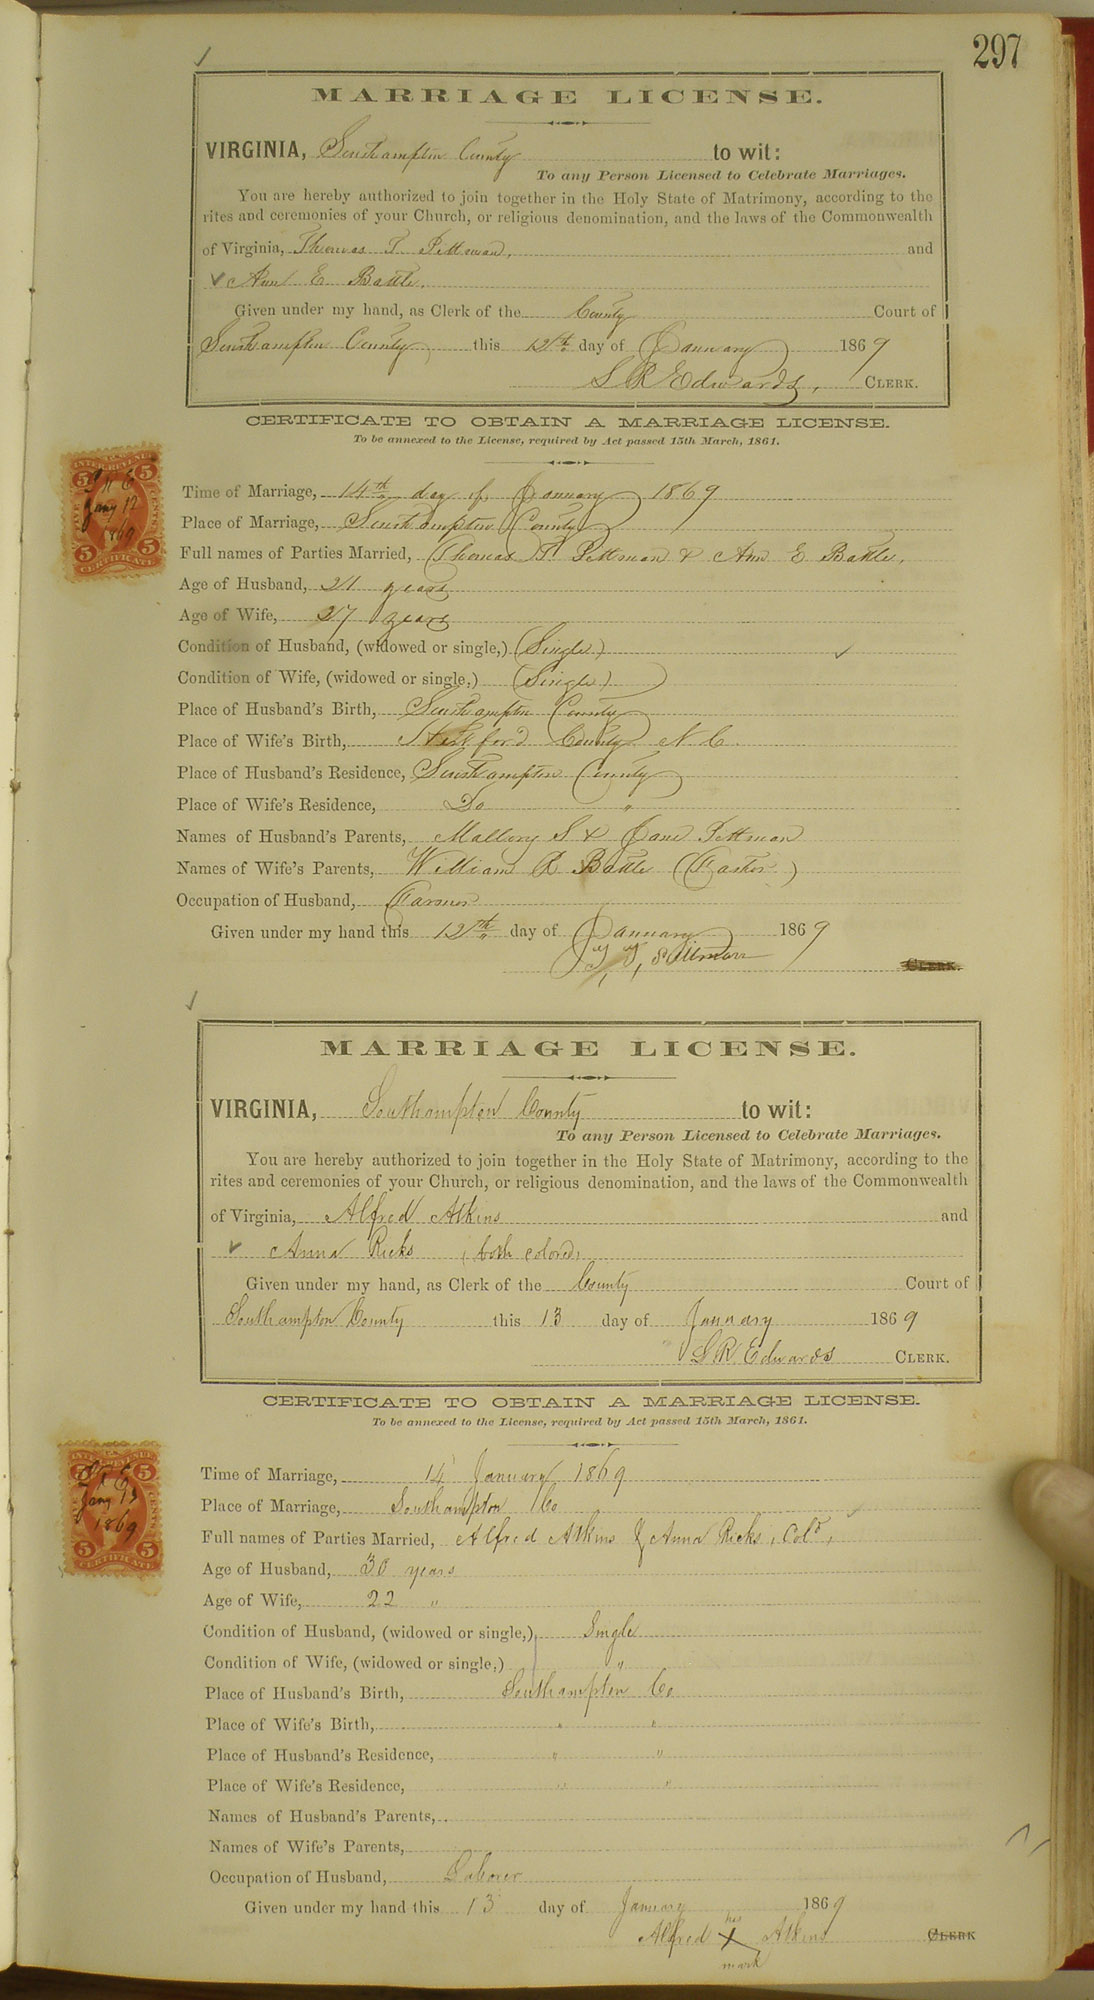 297
MARRIAGE LICENSE.
VIRGINIA, Southampton County to wit:
To any Person Licensed to Celebrate Marriages.
You are hereby authorized to join together in the Holy State of Matrimony, according to the
rites and ceremonies of your Church, or religious denomination, and the laws of the Commonwealth
of Virginia, Thomas T. Pittman, and
Ann E Battle.
Given under my hand, as Clerk of the County Court of
Southampton County this 12th day of January 1869
S R Edwards, CLERK.
CERTIFICATE TO OBTAIN A MARRIAGE LICENSE.
To be annexed to the License, required by Act passed 15th March, 1861.
Time of Marriage, 14th day of January 1869
Place of Marriage, Southampton County
Full names of Parties Married, Thomas T. Pittman & Ann E Battle.
Age of Husband, 21 years
Age of Wife, 27 years
Condition of Husband, (widowed or single,) (Single)
Condition of Wife, (widowed or single,) (Single)
Place of Husband's Birth, Southampton County
Place of Wife's Birth, Hertford County N. C.
Place of Husband's Residence, Southampton County
Place of Wife's Residence, Do "
Names of Husband's Parents, Mallory S & Jane Pittman
Names of Wife's Parents, William R Battle
Occupation of Husband, Farmer
Given under my hand this 12th day of January 1869
T, T, Pittman CLERK.
INTER. REVENUE
5 5
S R E
Jany 12
1869
FIVE CENTS
5 5
CERTIFICATE
MARRIAGE LICENSE.
VIRGINIA, Southampton County to wit:
To any Person Licensed to Celebrate Marriages.
You are hereby authorized to join together in the Holy State of Matrimony, according to the
rites and ceremonies of your Church, or religious denomination, and the laws of the Commonwealth
of Virginia, Alfred Atkins and
Anna Ricks (both colored)
Given under my hand, as Clerk of the County Court of
Southampton County this 13 day of January 1869
S R Edwards CLERK.
CERTIFICATE TO OBTAIN A MARRIAGE LICENSE.
To be annexed to the License, required by Act passed 15th March, 1861.
Time of Marriage, 14 January 1869
Place of Marriage, Southampton Co
Full names of Parties Married, Alfred Atkins & Anna Ricks, Cold,
Age of Husband, 30 years
Age of Wife, 22 "
Condition of Husband, (widowed or single,) Single
Condition of Wife, (widowed or single,) "
Place of Husband's Birth, Southampton Co
Place of Wife's Birth, " "
Place of Husband's Residence, " "
Place of Wife's Residence, " "
Names of Husband's Parents,
Names of Wife's Parents,
Occupation of Husband, Laborer
Given under my hand this 13 day of January 1869
his
Alfred X Atkins CLERK
mark
INTER. REVENUE
5 5
S R E
Jany 13
1869
FIVE CENTS
5 5
CERTIFICATE